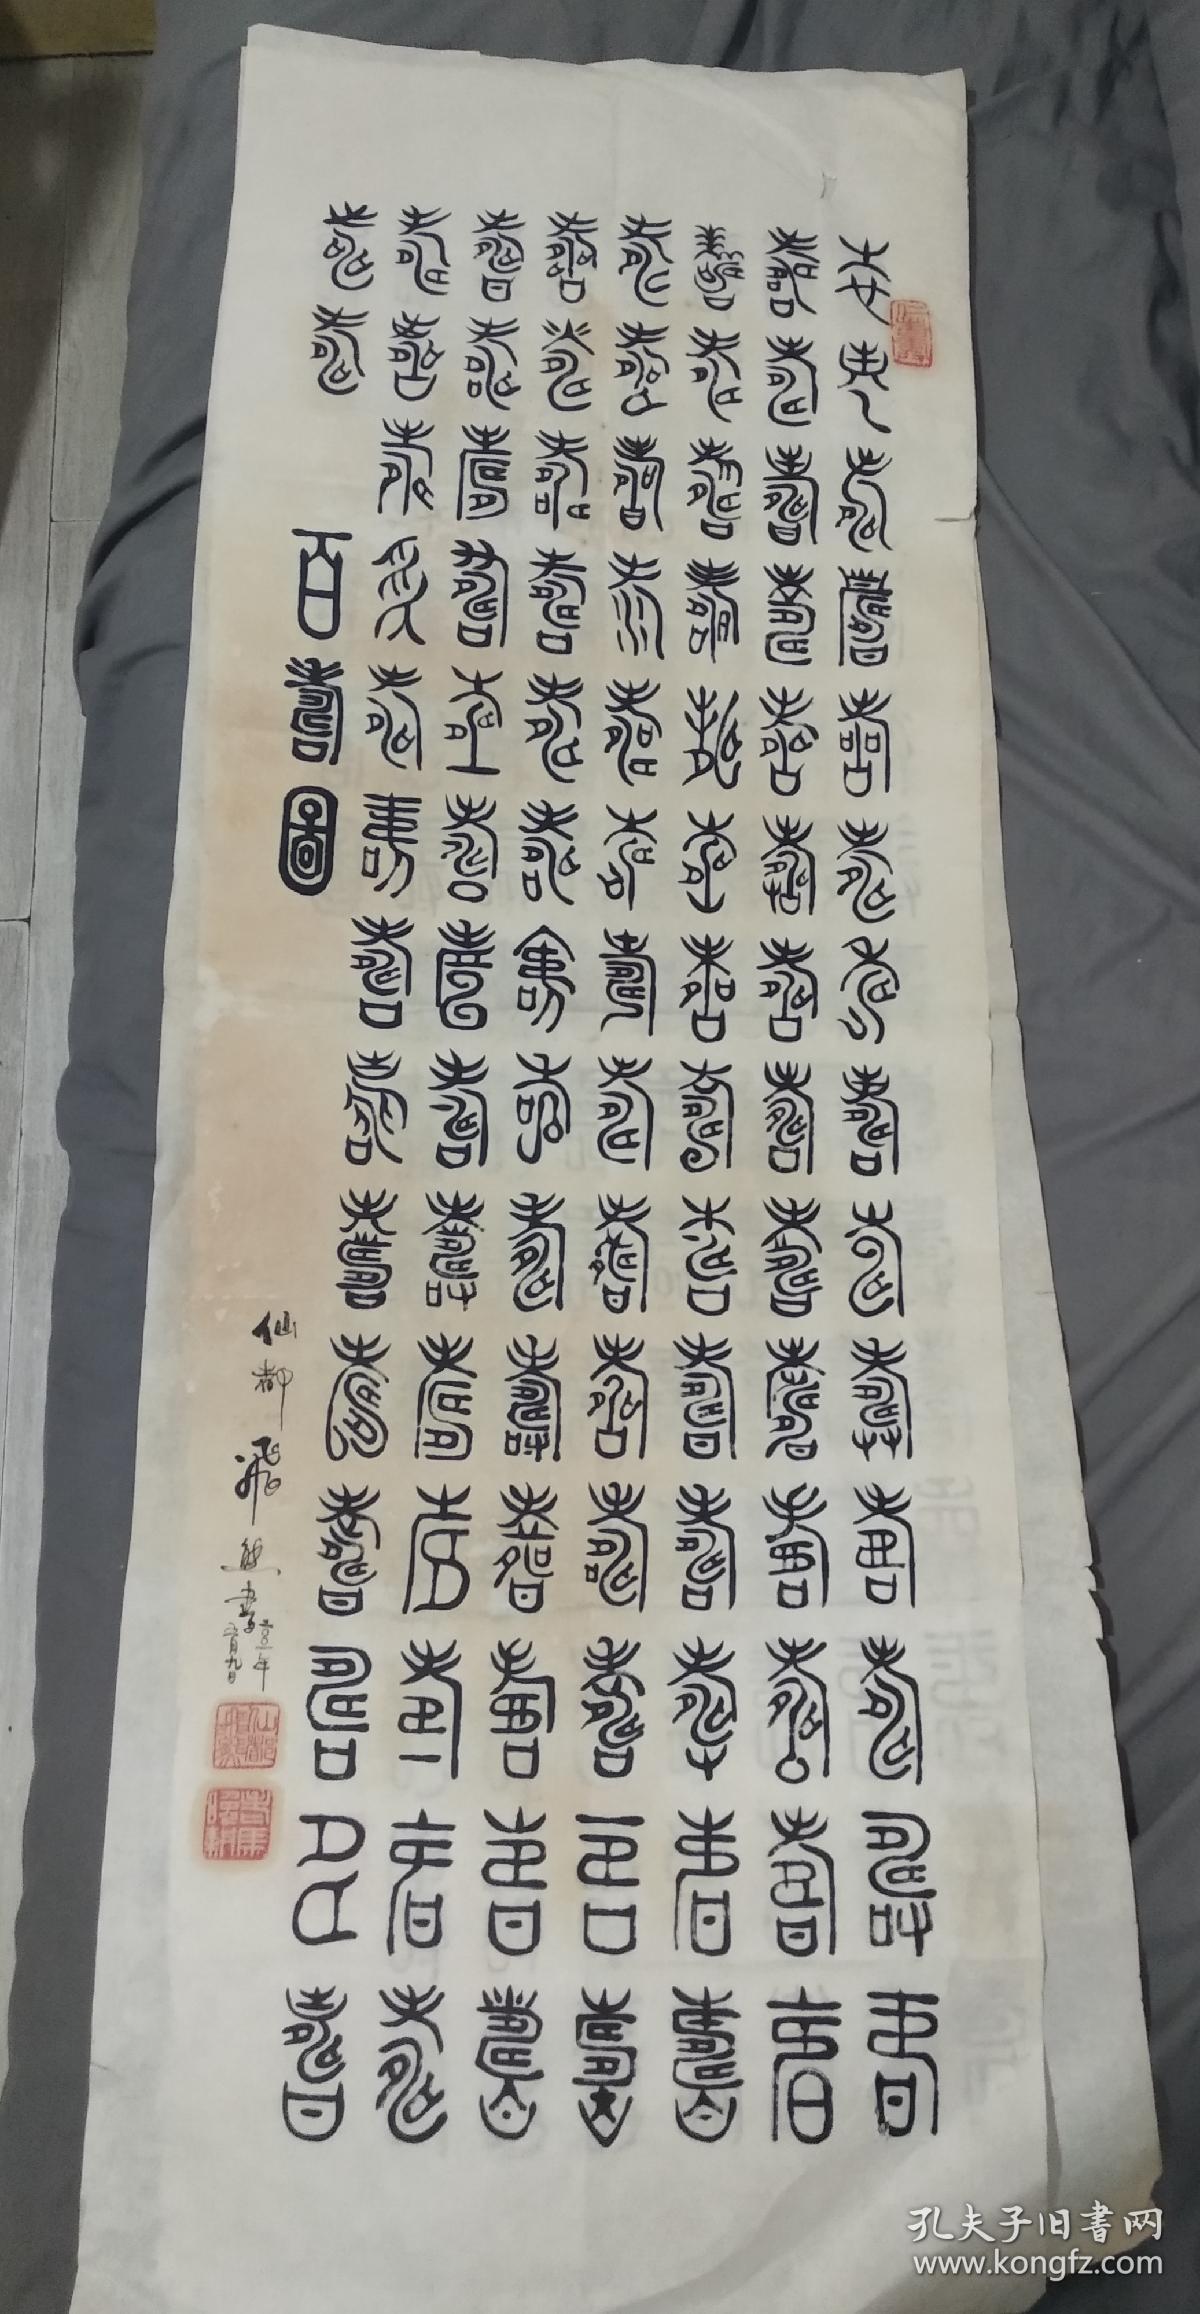 壽壽壽壽壽壽壽壽壽壽壽壽壽壽
壽壽壽壽壽壽壽壽壽壽壽壽壽壽
壽壽壽壽壽壽壽壽壽壽壽壽壽壽
壽壽壽壽壽壽壽壽壽壽壽壽壽壽
壽壽壽壽壽壽壽壽壽壽壽壽壽壽
壽壽壽壽壽壽壽壽壽壽壽壽壽壽
壽壽壽壽壽壽壽壽壽壽壽壽壽壽
壽壽
百壽圖
仙都飛熊書
年
五月九日
仙都飛熊
孔夫子旧書网
www.kongfz.com